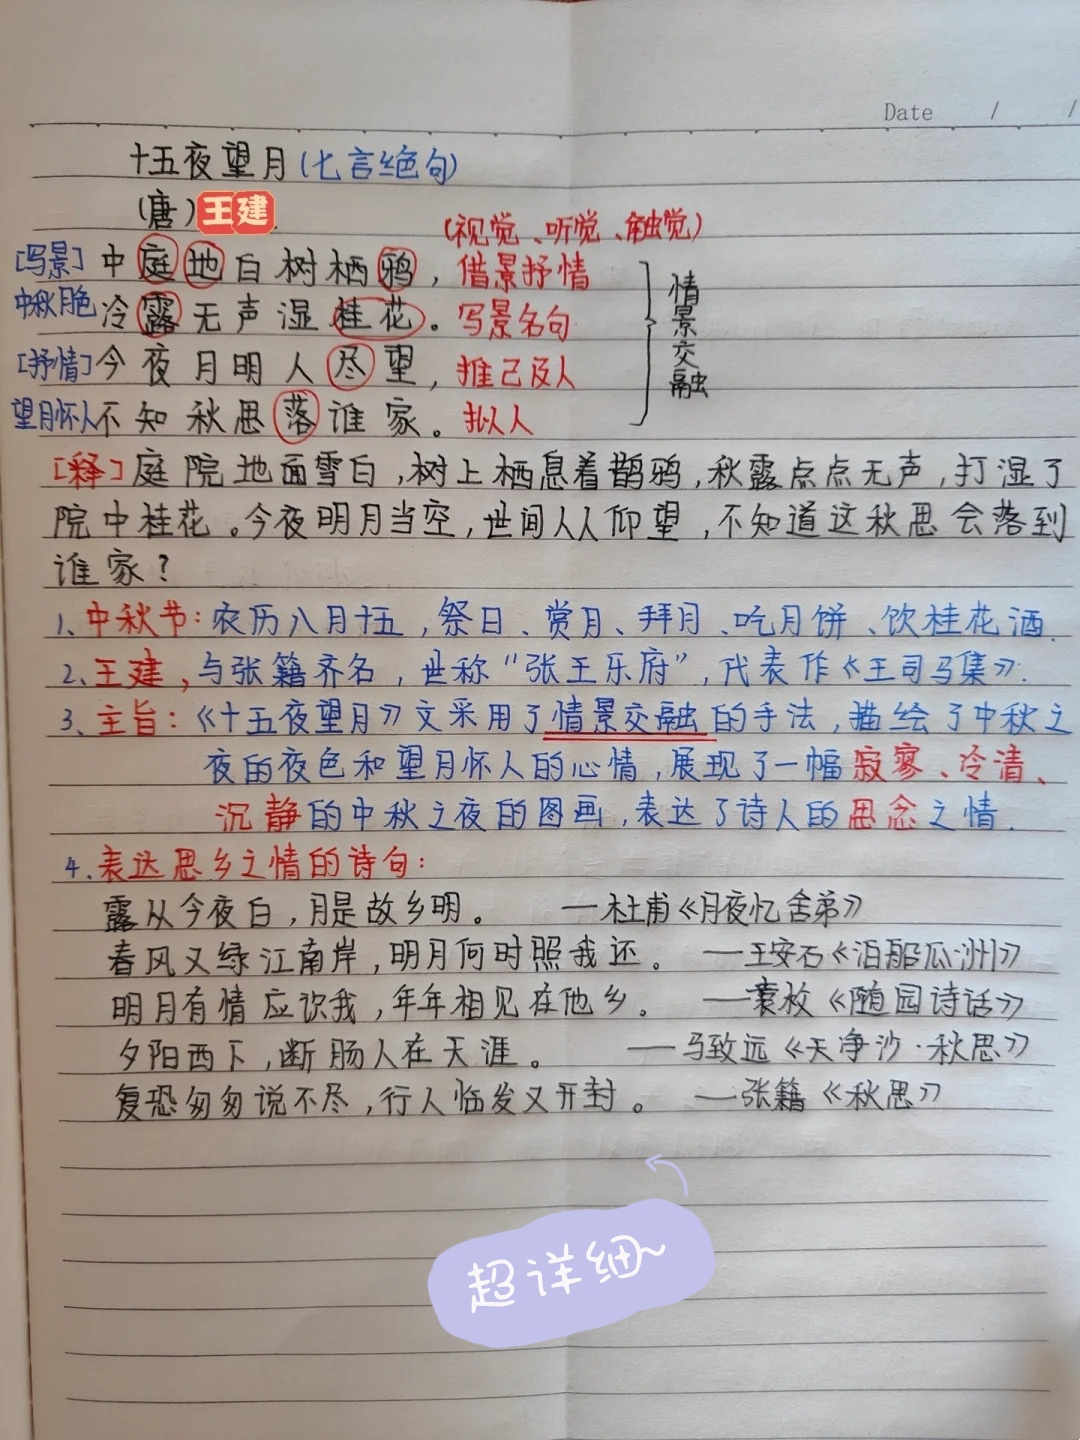 Date / /
十五夜望月(七言绝句)
(唐)王建
(视觉、听觉、触觉)
[写景]中庭地白树栖鸦,借景抒情
中秋月色冷露无声湿桂花。写景名句
[抒情]今夜月明人尽望,推己及人
望月怀人不知秋思落谁家。拟人
情景交融
[释]庭院地面雪白,树上栖息着鹊鸦,秋露点点无声,打湿了
院中桂花。今夜明月当空,世间人人仰望,不知道这秋思会落到
谁家?
1、中秋节:农历八月十五,祭日、赏月、拜月、吃月饼、饮桂花酒.
2、王建,与张籍齐名,世称“张王乐府”,代表作《王司马集》.
3、主旨:《十五夜望月》文采用了情景交融的手法,描绘了中秋之
夜的夜色和望月怀人的心情,展现了一幅寂寥、冷清、
沉静的中秋之夜的图画,表达了诗人的思念之情.
4.表达思乡之情的诗句:
露从今夜白,月是故乡明。 —杜甫《月夜忆舍弟》
春风又绿江南岸,明月何时照我还。 —王安石《泊船瓜洲》
明月有情应识我,年年相见在他乡。 —袁枚《随园诗话》
夕阳西下,断肠人在天涯。 —马致远《天净沙·秋思》
复恐匆匆说不尽,行人临发又开封。 —张籍《秋思》
超详细~